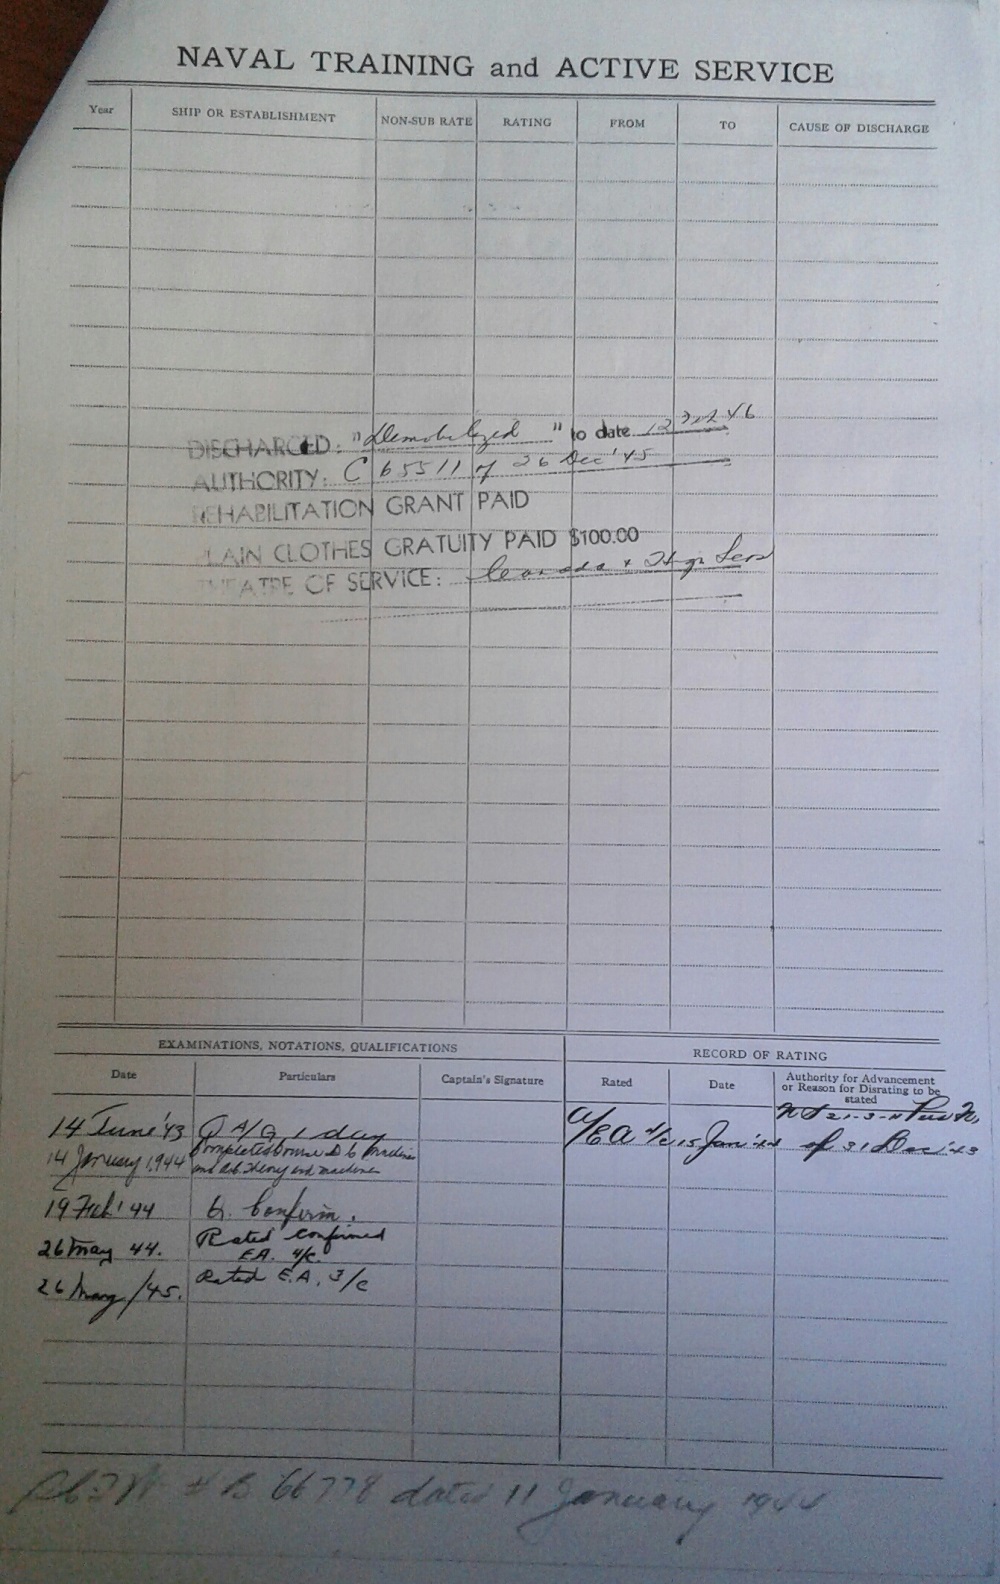 NAVAL TRAINING and ACTIVE SERVICE
Year SHIP OR ESTABLISHMENT NON-SUB RATE RATING FROM TO CAUSE OF DISCHARGE
DISCHARGED: "Demobilized" to date 12 46
AUTHORITY: C 65511 of 26 Dec '45
EHABILITATION GRANT PAID
LAIN CLOTHES GRATUITY PAID $100.00
EATRE OF SERVICE: Canada + High Seas
EXAMINATIONS, NOTATIONS, QUALIFICATIONS
RECORD OF RATING
Date Particulars Captain's Signature Rated Date Authority for Advancement
or Reason for Disrating to be
stated
14 June '43 Q A/G 1 day
14 January 1944 Completed Course D.C. Machine
and A.C. Theory and machines
19 Feb '44 G. Confirm.
26 May 44. Rated confirmed
E.A. 4/c.
26 May/45. Rated E.A. 3/c
A/EA 4/c 15 Jan '44 of 31 Dec '43
# B 66778 dated 11 January 1944